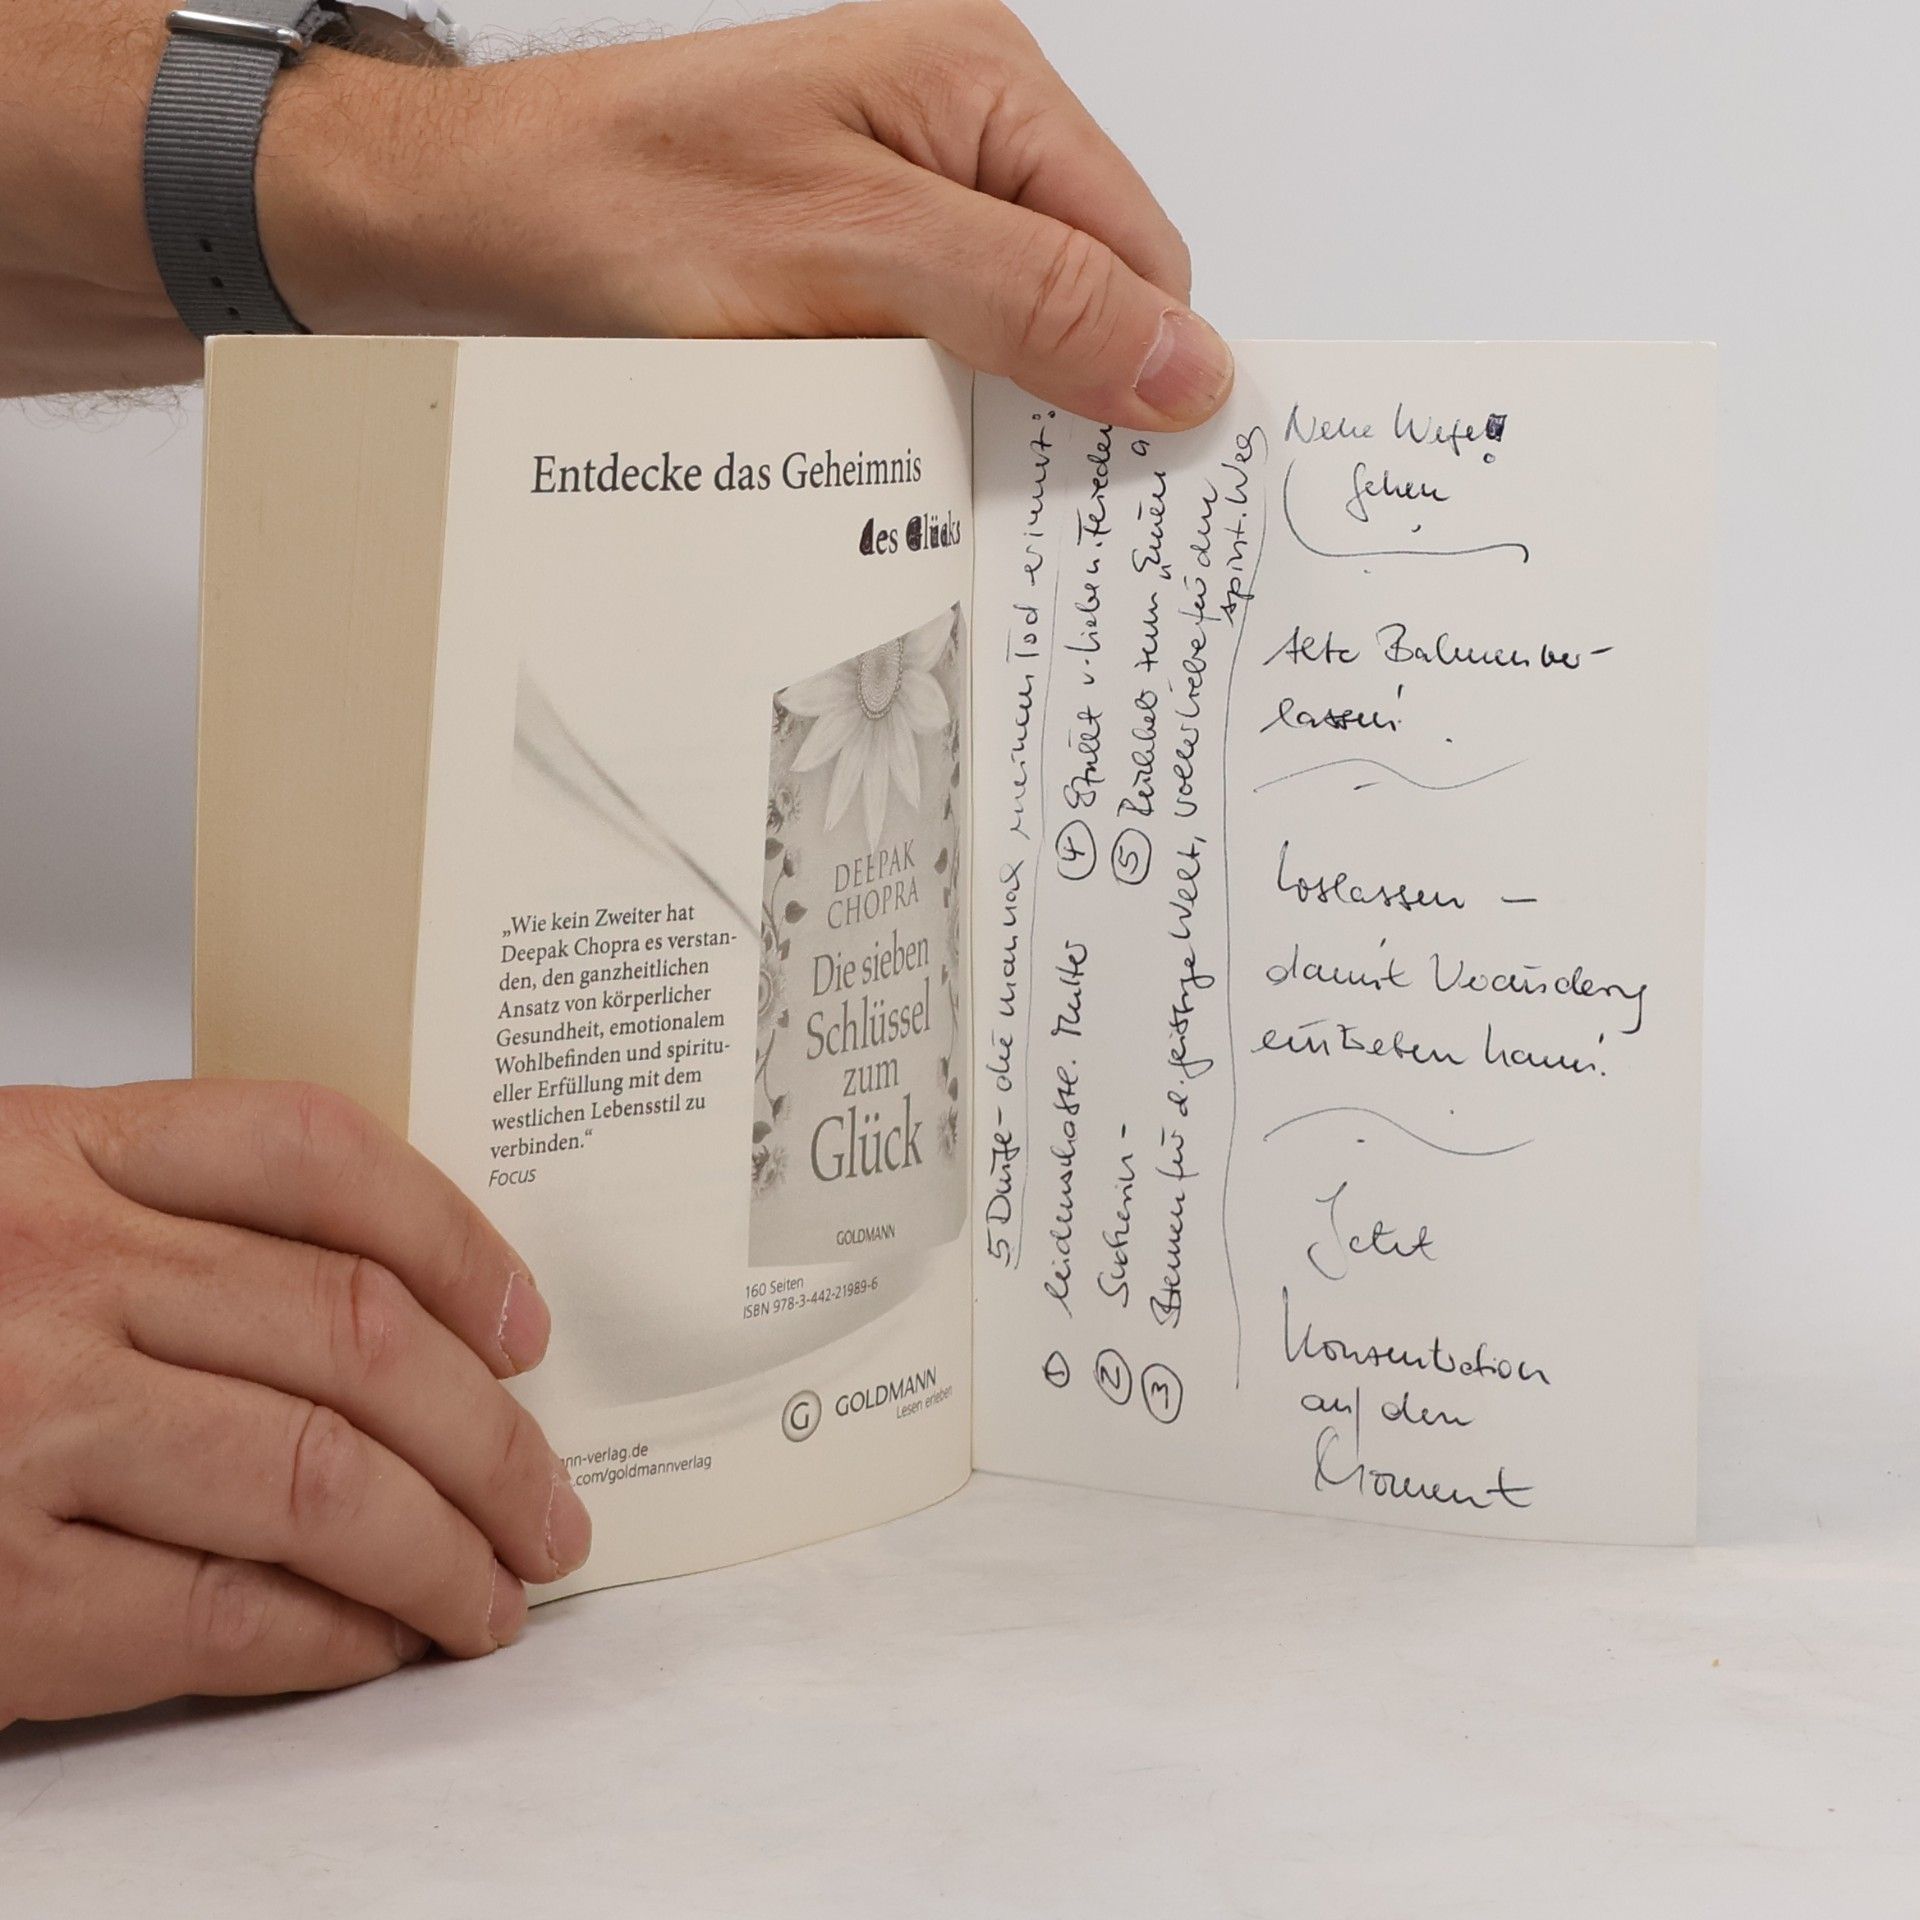 Entdecke das Geheimnis
des Glücks
„Wie kein Zweiter hat
Deepak Chopra es verstan-
den, den ganzheitlichen
Ansatz von körperlicher
Gesundheit, emotionalem
Wohlbefinden und spiritu-
eller Erfüllung mit dem
westlichen Lebensstil zu
verbinden.“
Focus
DEEPAK
CHOPRA
Die sieben
Schlüssel
zum
Glück
GOLDMANN
160 Seiten
ISBN 978-3-442-21989-6
G GOLDMANN
Lesen erleben
nn-verlag.de
.com/goldmannverlag
5 Dinge - die man nach meinem Tod erinnert:
① leidenschaftl. Mutter
② Sucherin -
③ für d. geistige Welt, voller Liebe für den
spirit. Weg
④ v. Liebe u. Frieden
⑤
Neue Wege!
gehen
Alte Bahnen ver-
lassen!
Loslassen -
damit Veränderg
eintreten kann!
Jetzt
Konzentration
auf den
Moment